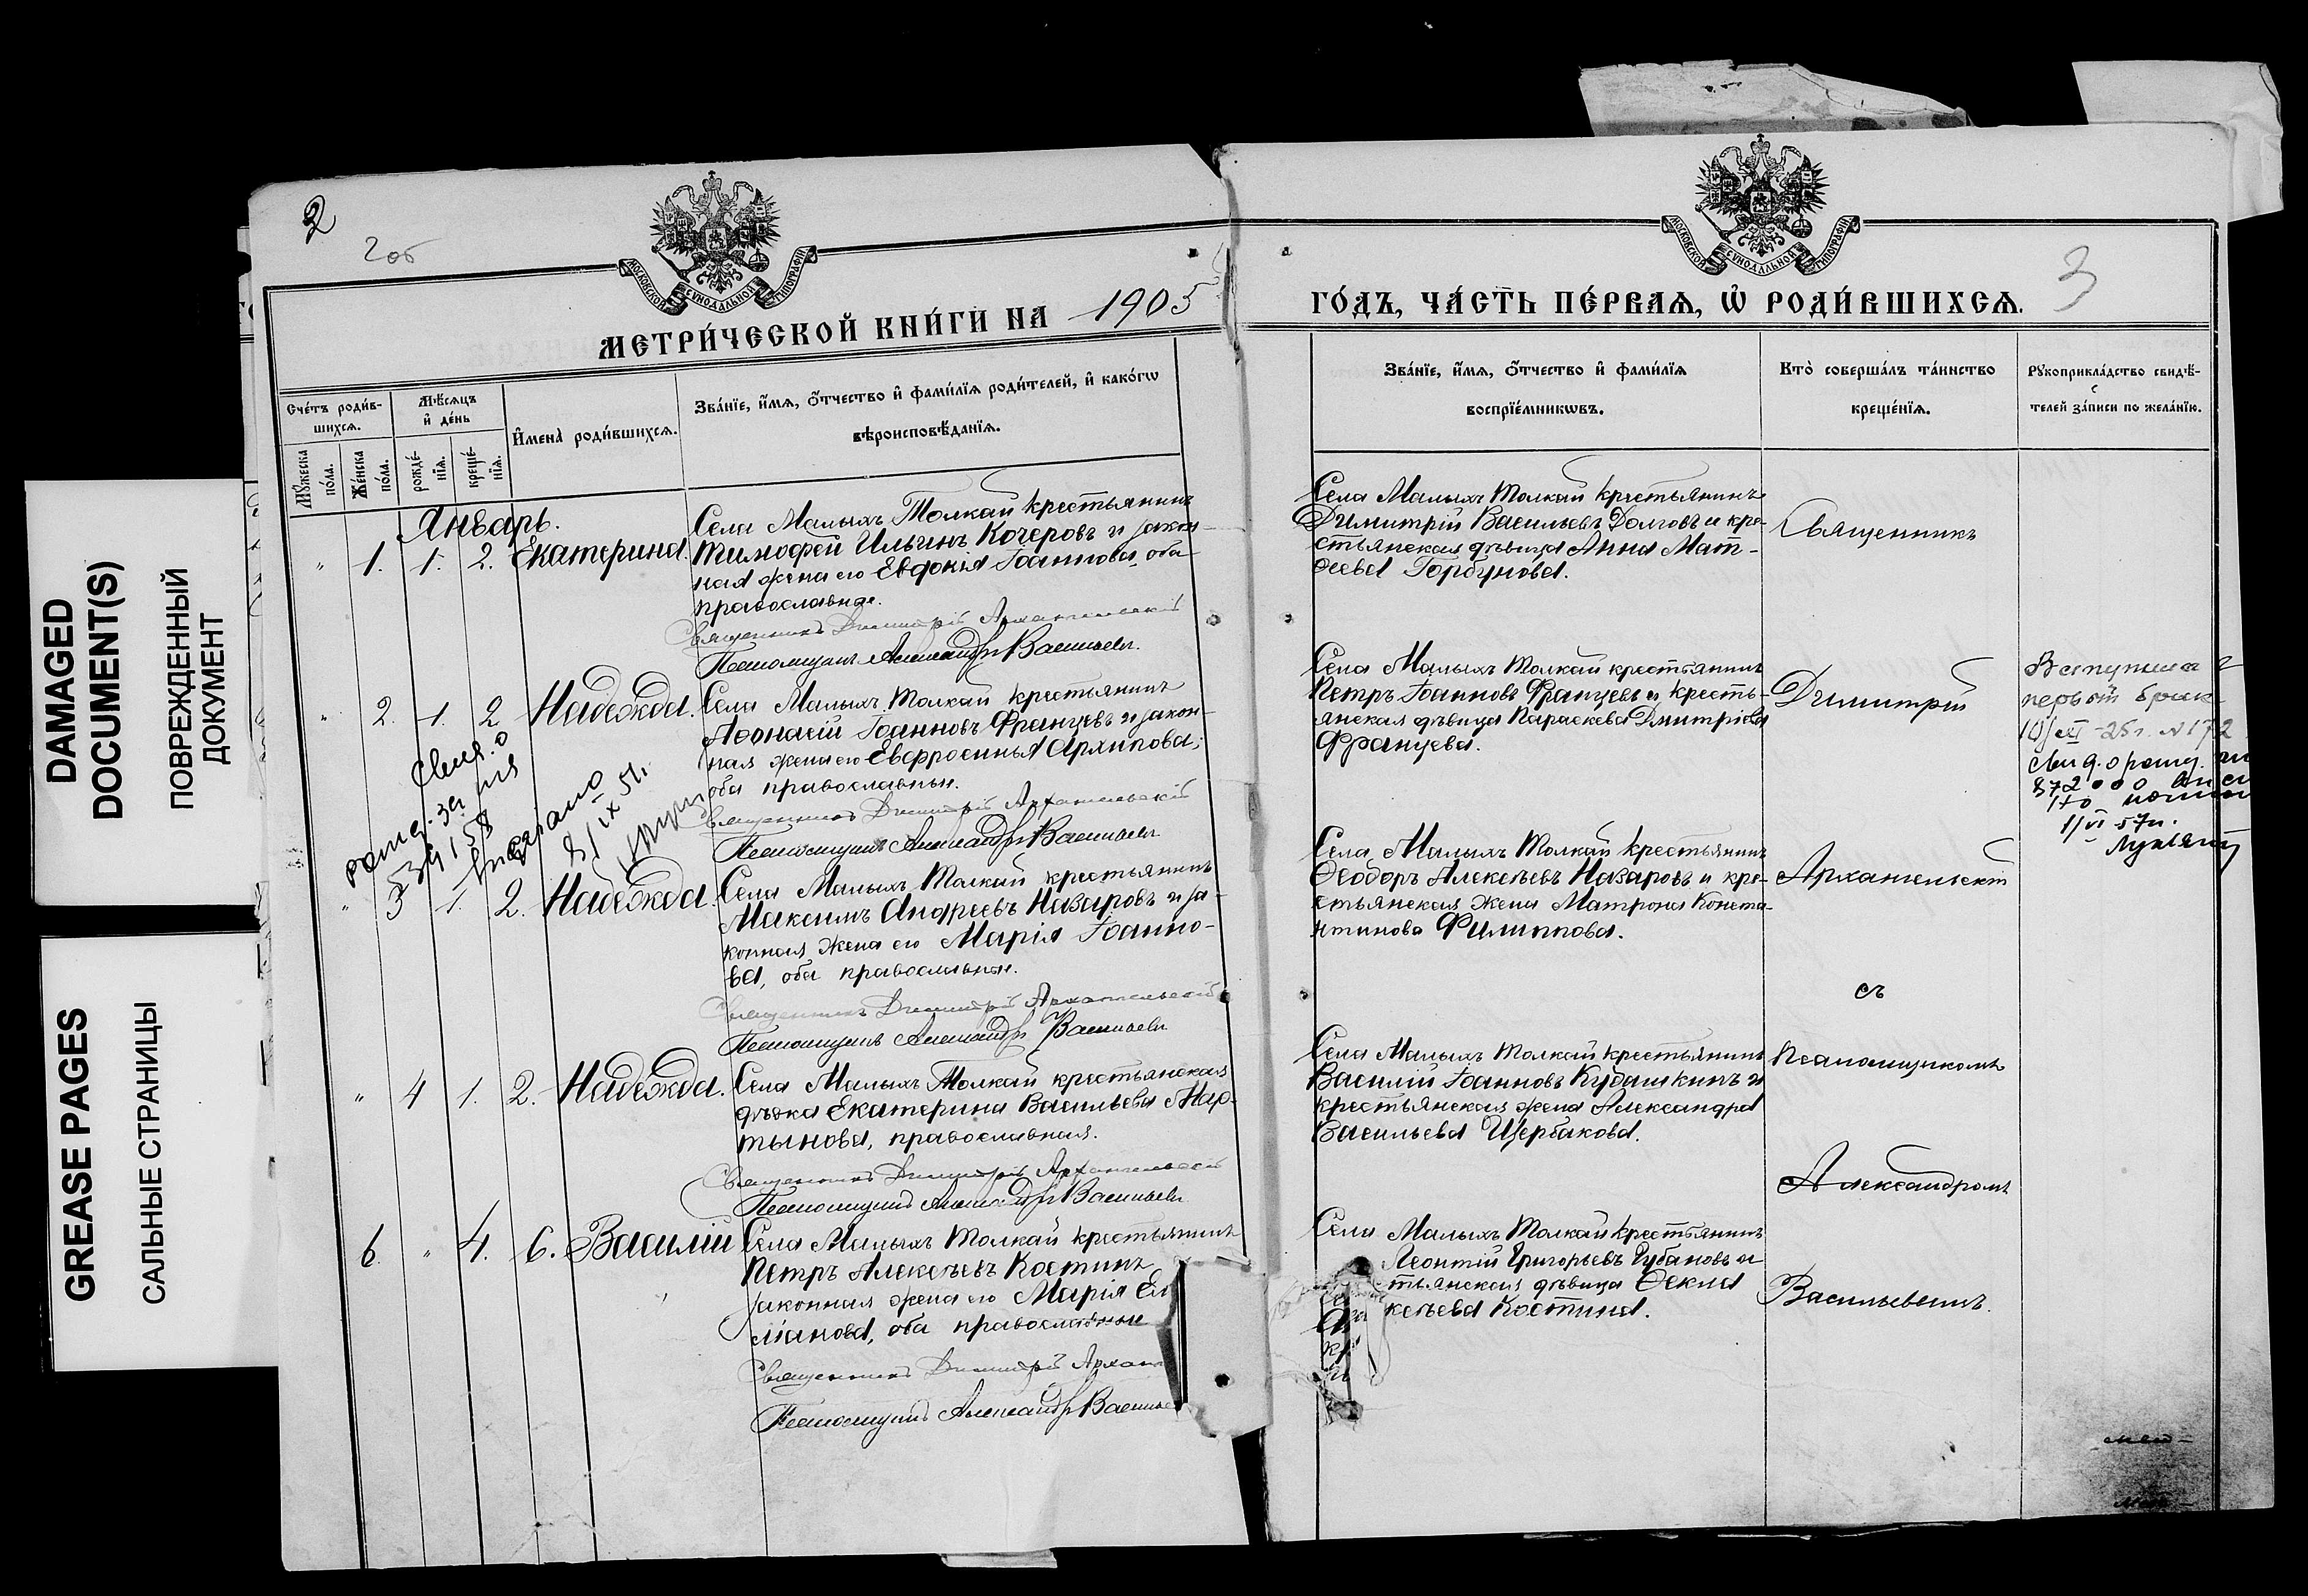 DAMAGED
DOCUMENT(S)
ПОВРЕЖДЕННЫЙ
ДОКУМЕНТ
GREASE PAGES
САЛЬНЫЕ СТРАНИЦЫ
2
2об
МОСКОВСКОЙ СѴНОДАЛЬНОЙ ТИПОГРАФІИ
МЕТРИ́ЧЕСКОЙ КНИ́ГИ НА 1905
Сче́тъ роди́в-
шихсѧ.
Мѣ́сяцъ
и҆ де́нь
Мꙋ́жеска
по́ла.
Же́нска
по́ла.
рожде́-
нїѧ.
креще́-
нїѧ.
И҆мена̀ роди́вшихсѧ.
Зва́нїе, и҆́мѧ, ѻ҆́тчество и҆ фами́лїѧ роди́телей, и҆ како́гѡ
вѣроисповѣ́данїѧ.
Январь.
" 1. 1. 2. Екатерина.
Села Малыхъ Толкай крестьянинъ
Тимофей Ильинъ Кочеровъ и закон-
ная жена его Евдокія Іоаннова, оба
православные.
Священникъ Димитрій Архангельскій
Псаломщикъ Александръ Васильевъ.
" 2. 1. 2 Надежда.
Села Малыхъ Толкай крестьянинъ
Аѳонасій Іоанновъ Францевъ и закон-
ная жена его Евфросинья Архипова,
оба православные.
Священникъ Димитрій Архангельскій
Псаломщикъ Александръ Васильевъ
Свид. о
рожд. за №
534158
выдано
8/IX 51.
" 3 1. 2. Надежда.
Села Малыхъ Толкай крестьянинъ
Максимъ Андреевъ Назаровъ и за-
конная жена его Марія Іоанно-
ва, оба православные.
Священникъ Димитрій Архангельскій
Псаломщикъ Александръ Васильевъ
" 4 1. 2. Надежда.
Села Малыхъ Толкай крестьянская
дѣвка Екатерина Васильева Мар-
тынова, православная.
Священникъ Димитрій Архангельскій
Псаломщикъ Александръ Васильевъ
6. " 4. 6. Василій
Села Малыхъ Толкай крестьянинъ
Петръ Алексѣевъ Костинъ
законная жена его Марія Ем
ліанова, оба православные
Священникъ Димитрій Арханг
Псаломщикъ Александръ Василье
МОСКОВСКОЙ СѴНОДАЛЬНОЙ ТИПОГРАФІИ
ГО́ДЪ, ЧА́СТЬ ПЕ́РВАѦ, Ѡ҆ РОДИ́ВШИХСѦ.
3
Зва́нїе, и҆́мѧ, ѻ҆́тчество и҆ фами́лїѧ
воспрїе́мникѡвъ.
Кто̀ соверша́лъ та́инство
креще́нїѧ.
Рꙋкоприкла́дство свидѣ́-
телей за́писи по жела́нїю.
Села Малыхъ Толкай крестьянинъ
Димитрій Васильевъ Долговъ и кре-
стьянская дѣвица Анна Мат-
ѳеева Горбунова.
Села Малыхъ Толкай крестьянинъ
Петръ Іоанновъ Францевъ и кресть-
янская дѣвица Параскева Дмитріева
Францева.
Села Малыхъ Толкай крестьянинъ
Ѳеодоръ Алексѣевъ Назаровъ и кре-
стьянская жена Матрона Конста-
нтинова Филиппова.
Села Малыхъ Толкай крестьянинъ
Василій Іоанновъ Кудашкинъ и
крестьянская жена Александра
Васильева Щербакова.
Села Малыхъ Толкай крестьянинъ
Леонтій Григорьевъ Губановъ и
стьянская дѣвица Ѳекла
ксѣева Костина.
Священникъ
Димитрій
Архангельскій
съ
Псаломщикомъ
Александромъ
Васильевымъ.
Вступила в
первый брак
10/XI-25г. №172
Свид. о рожд.
1/VI 57г.